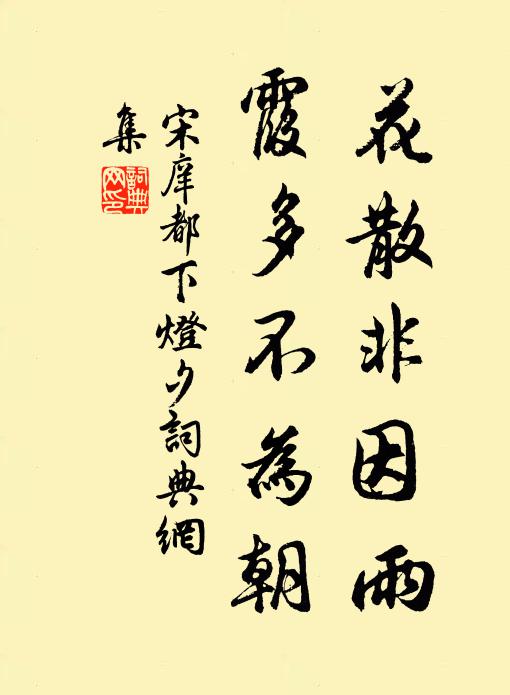 花散非因雨
霞多不為朝
宋庠都下燈夕詞典網
集
詞典
网印